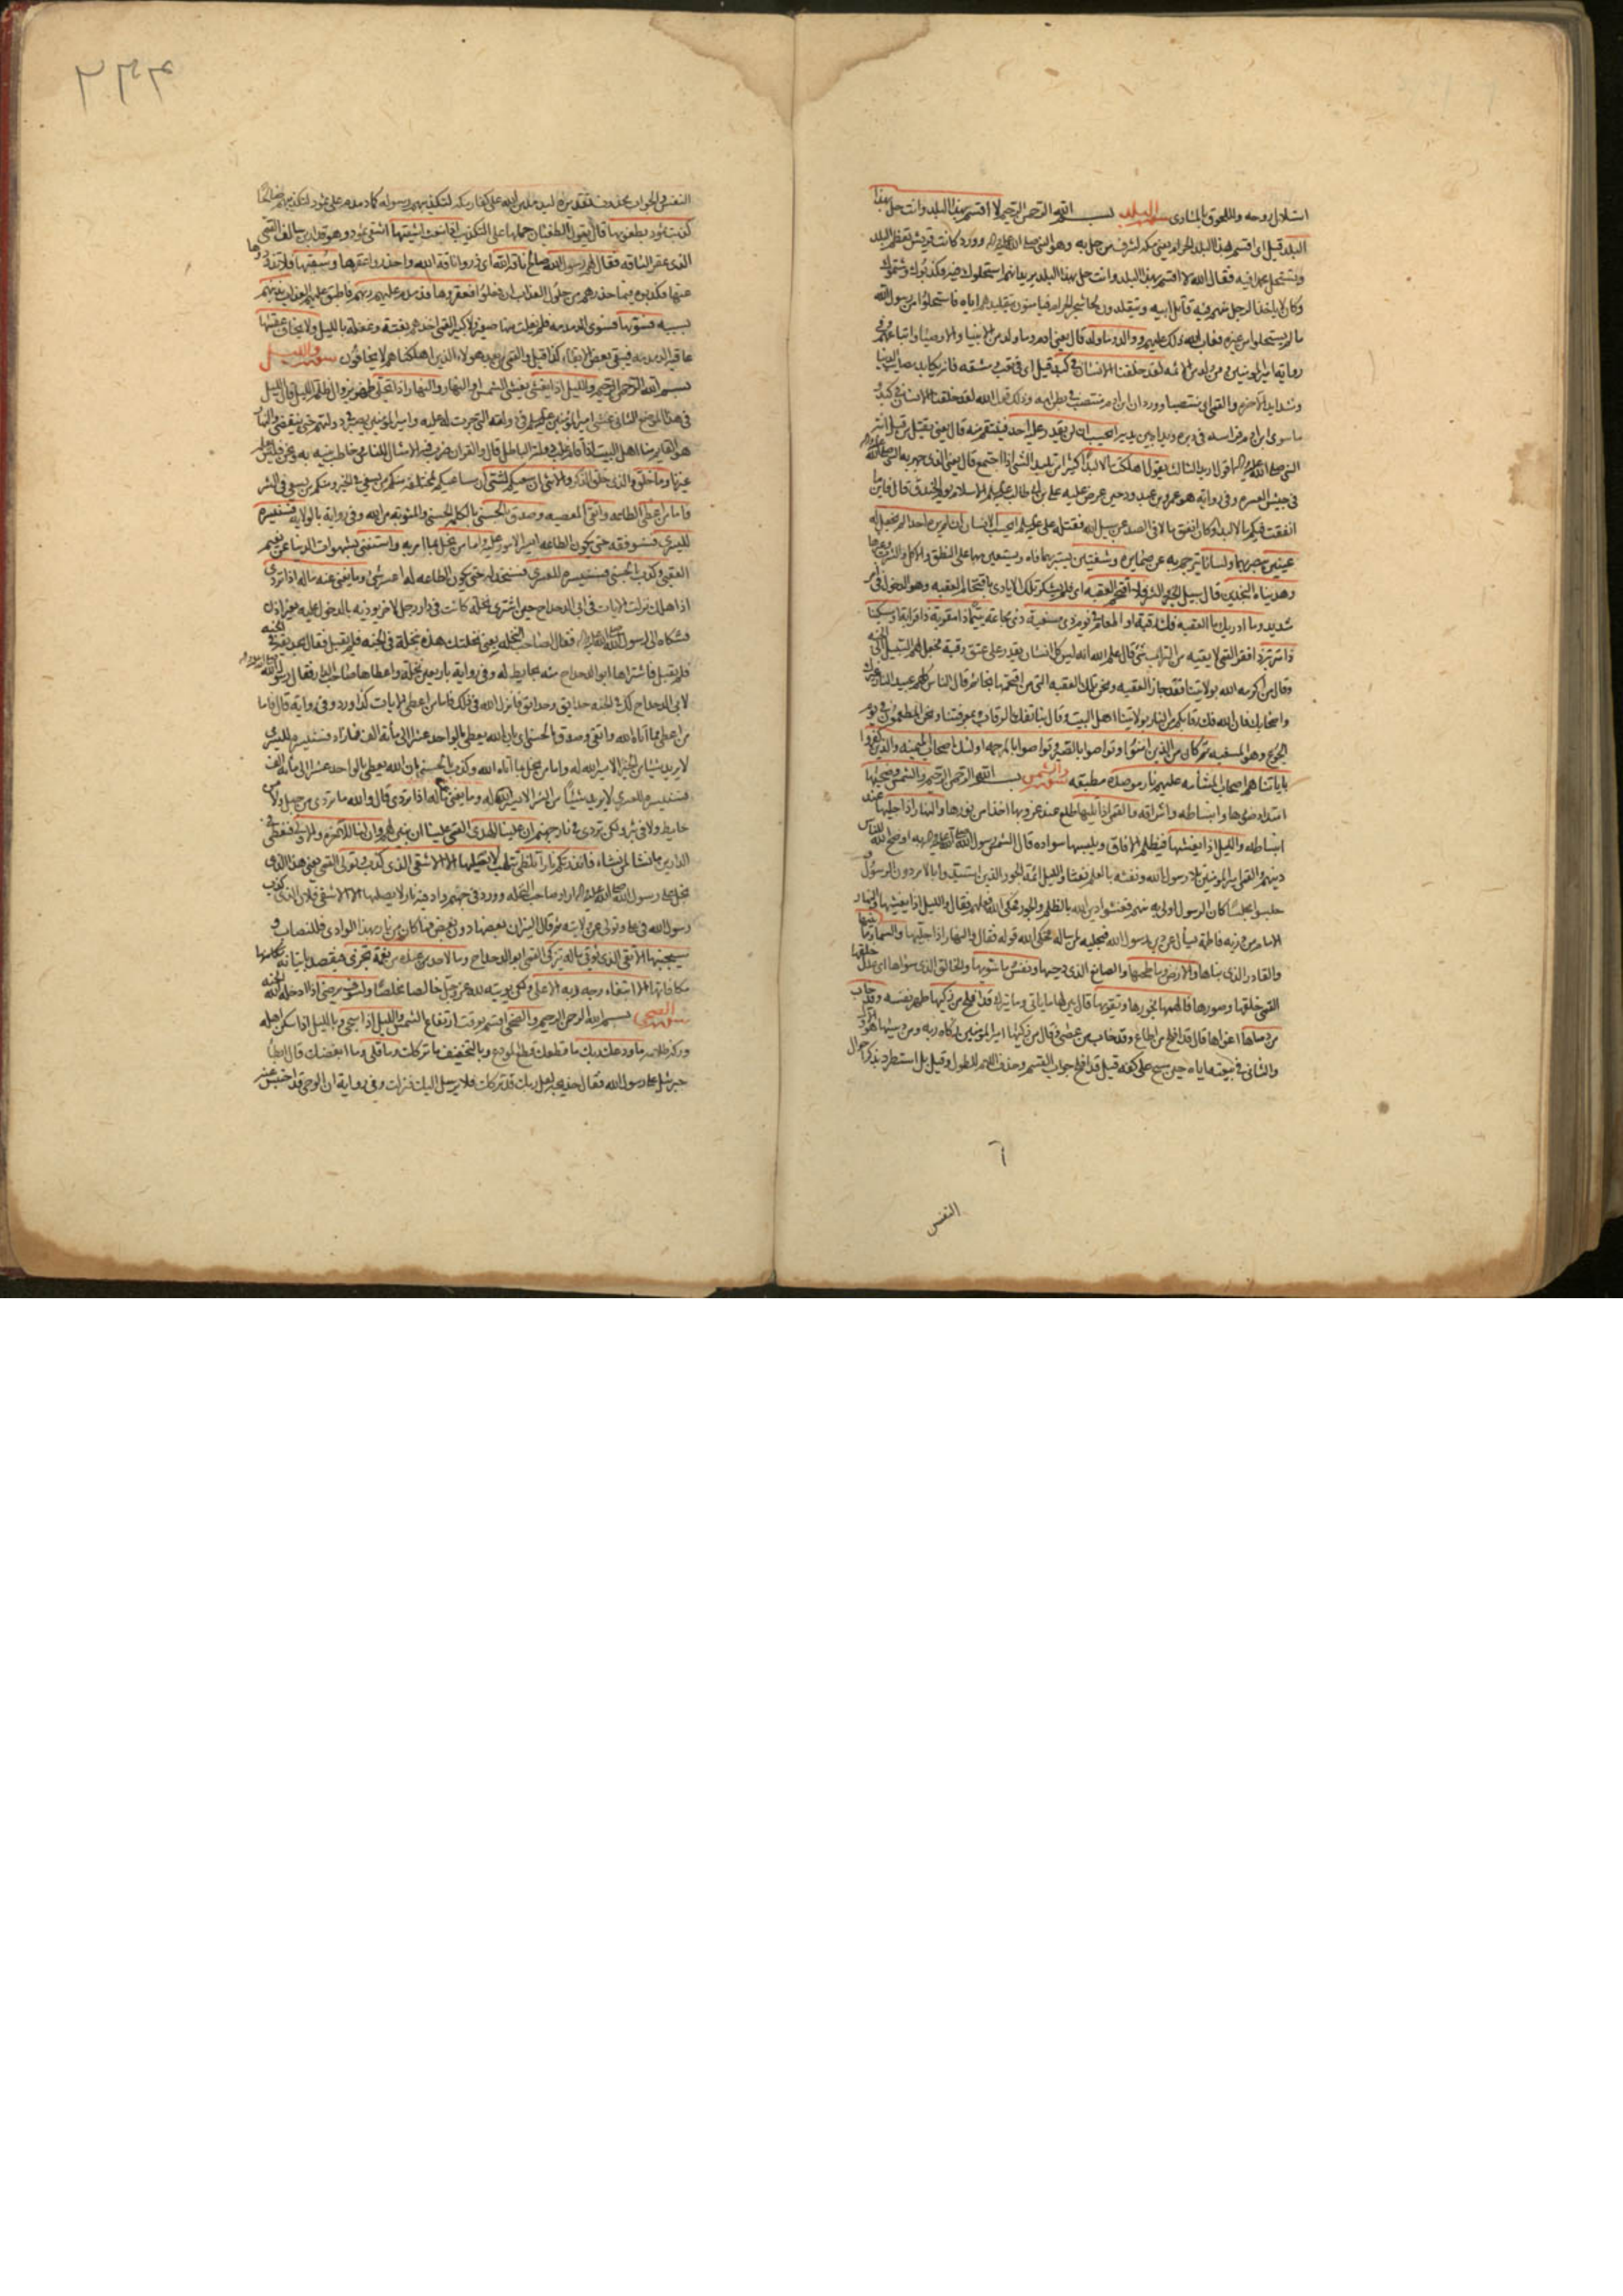 استلال روحه واللحوق بالمنادى سورة البلد بسم الله الرحمن الرحيم لا اقسم بهذا البلد وانت حل بهذا
البلد قيل اى اقسم بهذا البلد الحرام يعنى مكه لشرف من حل به وهو النبى صلى الله عليه واله وورد كانت قريش تعظم البلد
وتستحل محمدا فيه فقال الله لا اقسم بهذا البلد وانت حل بهذا البلد يريد انهم استحلوك فيه فكذبوك وشتموك
وكان لا ياخذ الرجل منهم فيه قاتل ابيه ويتقلدون لحاء شجر الحرم فيامنون بتقليدهم اياه فاستحلوا من رسول الله
ما لم يستحلوا من غيره فعاب الله ذلك عليهم ووالد وما ولد قال يعنى ادم وما ولد من الانبياء والاوصياء واتباعهم وفى
رواية امير المؤمنين ومن ولد من الائمه لقد خلقنا الانسان فى كبد قيل اى فى تعب ومشقه فانه يكابد مصايب الدنيا
وشدايد الاخره والقمى اى منتصبا وورد ان ابن ادم منتصب فى بطن امه وذلك قول الله لقد خلقنا الانسان فى كبد
ما سوى ابن ادم فراسه فى دبره ويداه بين يديه ايحسب ان لن يقدر عليه احد فينتقم منه قال يعنى يقتل من قتل ابنة
النبى صلى الله عليه واله يقول اهلكت مالا لبدا كثيرا من تلبد الشئ اذا اجتمع قال يعنى الذى جهز به النبى صلى الله عليه واله
فى جيش العسره وفى رواية هو عمرو بن عبد ود حين عرض عليه على بن ابى طالب عليه السلام الاسلام يوم الخندق قال فاين ما
انفقت فيكم مالا لبدا وكان انفق مالا فى الصد عن سبيل الله فقتله على عليه السلام ايحسب الانسان ان لم يره احد الم نجعل له
عينين يبصر بهما ولسانا يترجم به عن ضمايره وشفتين يستر بهما فاه ويستعين بهما على النطق والاكل والشرب وغيرها
وهديناه النجدين قال سبيل الخير والشر فلا اقتحم العقبه اى فلم يشكر تلك الايادى باقتحام العقبه وهو الدخول فى امر
شديد وما ادريك ما العقبه فك رقبة او اطعام فى يوم ذى مسغبة ذى مجاعة يتيما ذا مقربة ذا قرابة او مسكينا
ذا متربة ذا فقر القمى لا يقيه من التراب شئ قال علم الله انه ليس كل انسان يقدر على عتق رقبة فجعل لهم السبيل الى الجنه
وقال من اكرمه الله بولايتنا فقد جاز العقبه ونحن تلك العقبه التى من اقتحمها نجا ثم قال الناس كلهم عبيد النار غيرك
واصحابك فان الله فك رقابكم من النار بولايتنا اهل البيت وقال بنا تفك الرقاب وبمعرفتنا ونحن المطعمون فى يوم
الجوع وهو المسغبه ثم كان من الذين امنوا وتواصوا بالصبر وتواصوا بالمرحمه اولئك اصحاب الميمنه والذين كفروا
باياتنا هم اصحاب المشامه عليهم نار موصده مطبقه سورة والشمس بسم الله الرحمن الرحيم والشمس وضحيها
امتداد ضوئها وانبساطه واشراقه والقمر اذا تليها طلع عند غروبها اخذا من نورها والنهار اذا جليها عند
انبساطه والليل اذا يغشيها فيظلم الافاق ويلبسها سواده قال الشمس رسول الله صلى الله عليه واله به اوضح الله للناس
دينهم والقمر امير المؤمنين تلا رسول الله ونفثه بالعلم نفثا والليل ائمة الجور الذين استبدوا بالامر دون ال رسول
جلسوا مجلسا كان ال رسول اولى به منهم فغشوا دين الله بالظلم والجور فحكى الله فعلهم فقال والليل اذا يغشيها والنهار
الامام من ذرية فاطمة يسال عن دين رسول الله فيجليه لمن ساله فحكى الله قوله فقال والنهار اذا جليها والسماء وما بنيها
والقادر الذى بناها والارض وما طحيها والصانع الذى دحيها ونفس وما سويها والخالق الذى سواها اى عدل خلقها
القمى خلقها وصورها فالهمها فجورها وتقويها قال بين لها ما ياتى وما يترك قد افلح من زكيها طهر نفسه وقد خاب
من دساها اغواها قال قد افلح من اطاع وقد خاب من عصى وقال من زكيها امير المؤمنين زكاه ربه ومن دسيها هو الاول
والثانى فى بيعته اياه حين مسح على كفه قيل قد افلح جواب القسم وحذف اللام للطول وقيل بل استطرد بذكر احوال
النفس
النفس والجواب محذوف تقديره ليدمدمن الله على كفار مكه لتكذيبهم رسوله كما دمدم على ثمود لتكذيبهم صالحا
كذبت ثمود بطغويها قال يقول الطغيان حملها على التكذيب اذ انبعث اشقيها اشقى ثمود وهو قدار بن سالف القمى
الذى عقر الناقه فقال لهم رسول الله صالح ناقة الله اى ذروا ناقة الله واحذروا عقرها وسقيها فلا تذودوها
عنها فكذبوه فيما حذرهم من حلول العذاب ان فعلوا فعقروها فدمدم عليهم ربهم فاطبق عليهم العذاب بذنبهم
بسببه فسويها فسوى الدمدمه فلم يفلت منها صغير ولا كبير القمى اخذهم بغتة وغفلة بالليل ولا يخاف عقبيها
عاقبة الدمدمه فيبقى بعض الابقاء كذا قيل والقمى من بعد هولاء الذين اهلكناهم لا يخافون سورة والليل
بسم الله الرحمن الرحيم والليل اذا يغشى يغشى الشمس او النهار والنهار اذا تجلى ظهر بزوال ظلمة الليل قال الليل
فى هذا الموضع الثانى غشى امير المؤمنين عليه السلام فى دولته التى جرت له عليه وامير المؤمنين يصبر فى دولتهم حتى تنقضى والنهار
هو القايم منا اهل البيت اذا قام غلب دولة الباطل قال والقران ضرب فيه الامثال للناس وخاطب نبيه به ونحن فليس يعلمه
غيرنا وما خلق والذى خلق الذكر والانثى ان سعيكم لشتى ان مساعيكم لمختلفة منكم من يسعى فى الخير ومنكم من يسعى فى الشر
فاما من اعطى الطاعه واتقى المعصيه وصدق بالحسنى بالكلمة الحسنى والمثوبة من الله وفى رواية بالولاية فسنيسره
لليسرى فسنوفقه حتى يكون الطاعه ايسر الامور عليه واما من بخل بما امر به واستغنى بشهوات الدنيا عن نعيم
العقبى وكذب بالحسنى فسنيسره للعسرى فسنخذله حتى يكون الطاعه له اعسر شئ وما يغنى عنه ماله اذا تردى
اذا هلك نزلت الايات فى ابى الدحداح حين اشترى نخلة كانت فى دار رجل لاخر يوذيه بالدخول عليه بغير اذن
فشكاه الى رسول الله صلى الله عليه واله فقال لصاحب النخله يعنى نخلتك هذه بنخلة فى الجنه فلم يقبل فقال بحديقة فى الجنه
فلم يقبل فاشتراها ابو الدحداح منه بحايط له وفى رواية باربعين نخلة واعطاها صاحب الدار فقال رسول الله صلى الله عليه واله
لابى الدحداح لك فى الجنه حدايق وحدايق فانزل الله فى ذلك فاما من اعطى الايات كذا ورد وفى رواية قال فاما
من اعطى مما اتاه الله واتقى وصدق بالحسنى اى بان الله يعطى بالواحد عشرا الى مائة الف فما زاد فسنيسره لليسرى
لا يريد شيئا من الخير الا يسره الله له واما من بخل بما اتاه الله وكذب بالحسنى بان الله يعطى بالواحد عشرا الى مائة الف
فسنيسره للعسرى لا يريد شيئا من الشر الا يسره الله له وما يغنى عنه ماله اذا تردى قال والله ما تردى من جبل ولا من
حايط ولا فى بئر ولكن تردى فى نار جهنم ان علينا للهدى القمى علينا ان نبين لهم وان لنا للاخرة والاولى فنعطى فى
الدارين ما نشاء لمن نشاء فانذرتكم نارا تلظى تتلهب لا يصليها الا الاشقى الذى كذب وتولى القمى يعنى هذا الذى
بخل على رسول الله صلى الله عليه واله اراد صاحب النخله وورد فى جهنم واد فيه نار لا يصلها الا الاشقى فلان الذى كذب
رسول الله فى على وتولى عن ولايته ثم قال النيران بعضها دون بعض فما كان من نار بهذا الوادى فللنصاب و
سيجنبها الاتقى الذى يوتى ماله يتزكى القمى ابو الدحداح وما لاحد من عنده من نعمة تجزى فيقصد بايتائه مكافاتها
مكافاتها الا ابتغاء وجه ربه الاعلى ولكن يوتيه لله عز وجل خالصا مخلصا ولسوف يرضى اذا ادخله الله الجنه
سورة الضحى بسم الله الرحمن الرحيم والضحى اقسم بوقت ارتفاع الشمس والليل اذا سجى وبالليل اذا سكن اهله
وركد ظلامه ما ودعك ربك ما قطعك قطع المودع وبالتخفيف ما تركك وما قلى وما ابغضك قال ابطا
جبرئيل على رسول الله فقال خديجه لعل ربك قد تركك فلا يرسل اليك فنزلت وفى رواية ان الوحى قد احتبس عنه